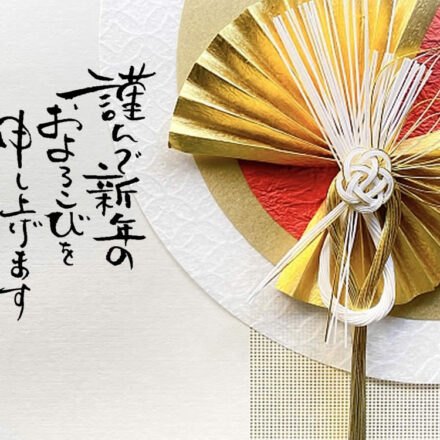 謹んで新年の
およろこびを
申し上げます